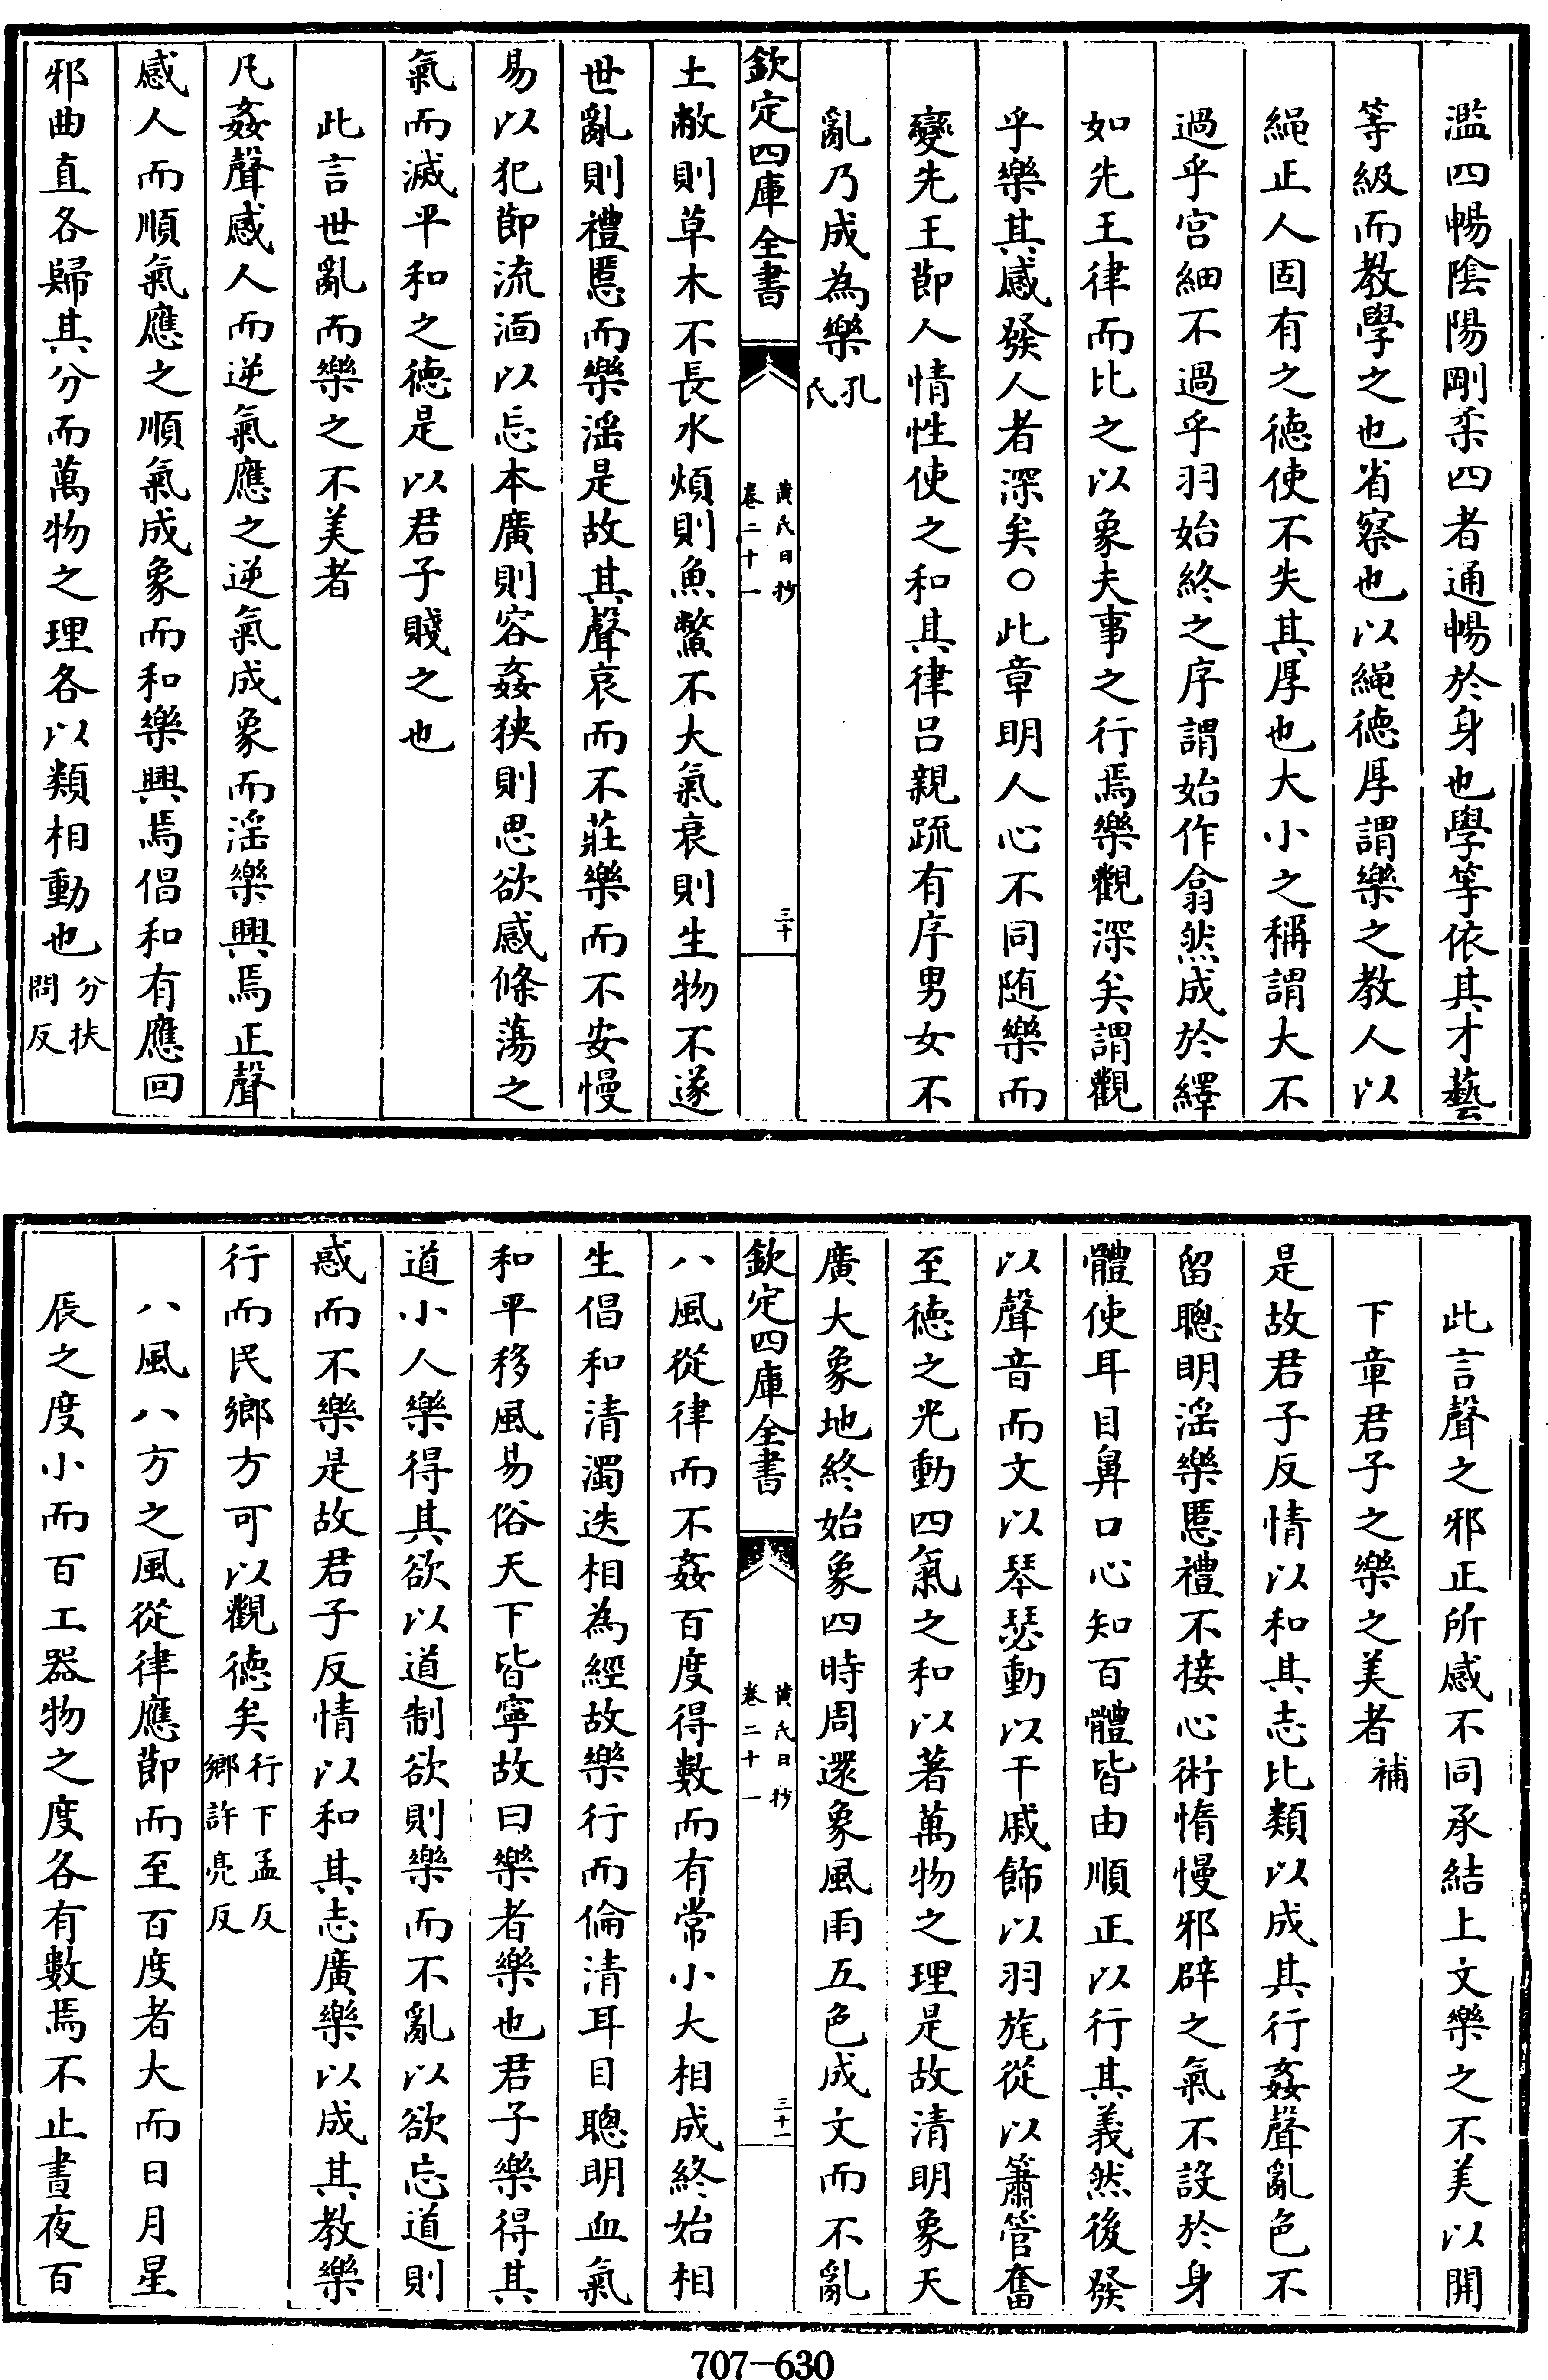 濫四暢陰陽剛柔四者通暢於身也學等依其才藝
等級而教學之也省察也以繩德厚謂樂之教人以
繩正人固有之德使不失其厚也大小之稱謂大不
過乎宫細不過乎羽始終之序謂始作翕然成於繹
如先王律而比之以象夫事之行焉樂觀深矣謂觀
乎樂其感發人者深矣○此章明人心不同随樂而
變先王節人情性使之和其律吕親疏有序男女不
亂乃成為樂孔氏
欽定四庫全書 黄氏日抄 卷二十一 三十
土敝則草木不長水煩則魚鱉不大氣衰則生物不遂
世亂則禮慝而樂滛是故其聲哀而不莊樂而不安慢
易以犯節流湎以忘本廣則容姦狹則思欲感條蕩之
氣而滅平和之德是以君子賤之也
此言世亂而樂之不美者
凡姦聲感人而逆氣應之逆氣成象而滛樂興焉正聲
感人而順氣應之順氣成象而和樂興焉倡和有應回
邪曲直各歸其分而萬物之理各以類相動也分扶問反
此言聲之邪正所感不同承結上文樂之不美以開
下章君子之樂之美者補
是故君子反情以和其志比類以成其行姦聲亂色不
留聰明滛樂慝禮不接心術惰慢邪辟之氣不設於身
體使耳目鼻口心知百體皆由順正以行其義然後發
以聲音而文以琴瑟動以干戚飾以羽旄從以簫管奮
至德之光動四氣之和以著萬物之理是故清明象天
廣大象地終始象四時周還象風雨五色成文而不亂
欽定四庫全書 黄氏日抄 卷二十一 三十一
八風從律而不姦百度得數而有常小大相成終始相
生倡和清濁迭相為經故樂行而倫清耳目聰明血氣
和平移風易俗天下皆寧故曰樂者樂也君子樂得其
道小人樂得其欲以道制欲則樂而不亂以欲忘道則
惑而不樂是故君子反情以和其志廣樂以成其教樂
行而民鄉方可以觀德矣行下孟反鄉許亮反
八風八方之風從律應節而至百度者大而日月星
辰之度小而百工器物之度各有數焉不止晝夜百
707-630